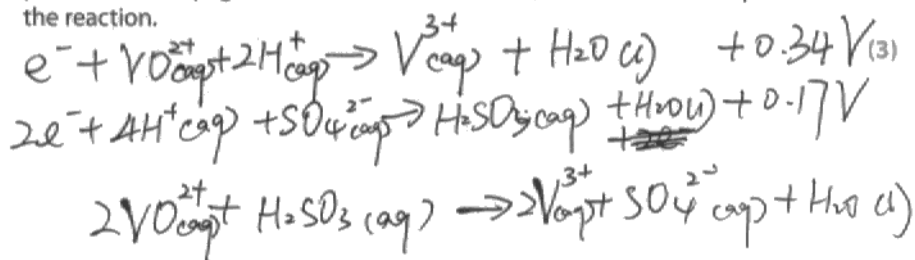 the reaction.
e⁻ + VO²⁺(aq) + 2H⁺(aq) → V³⁺(aq) + H₂O(l) +0.34V (3)
2e⁻ + 4H⁺(aq) + SO₄²⁻(aq) → H₂SO₃(aq) + H₂O(l) +0.17V
2VO²⁺(aq) + H₂SO₃(aq) → 2V³⁺(aq) + SO₄²⁻(aq) + H₂O(l)